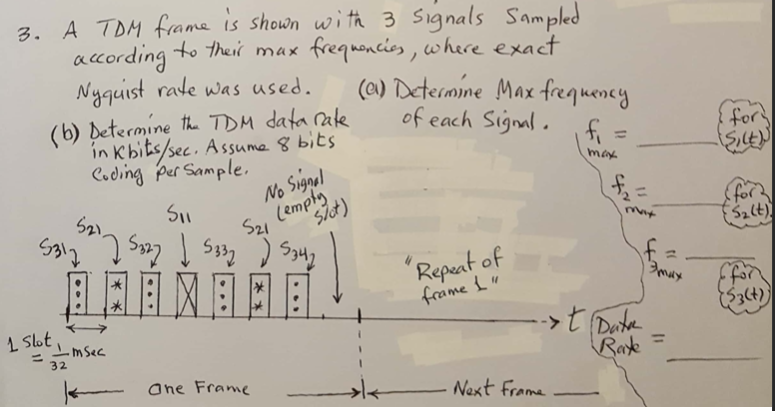 3. A TDM frame is shown with 3 Signals Sampled
according to their max frequencies, where exact
Nyquist rate was used. (a) Determine Max frequency
of each Signal.
(b) Determine the TDM data rate
in Kbits/sec. Assume 8 bits
Coding per Sample.
f1 max = ____ for S1(t)
f2 max = ____ for S2(t)
f3 max = ____ for S3(t)
Data Rate = ____
No Signal
(empty
slot)
S31 S21 S32 S11 S33 S21 S34
"Repeat of
frame 1"
t
1 slot
= 1/32 msec
One Frame
Next Frame